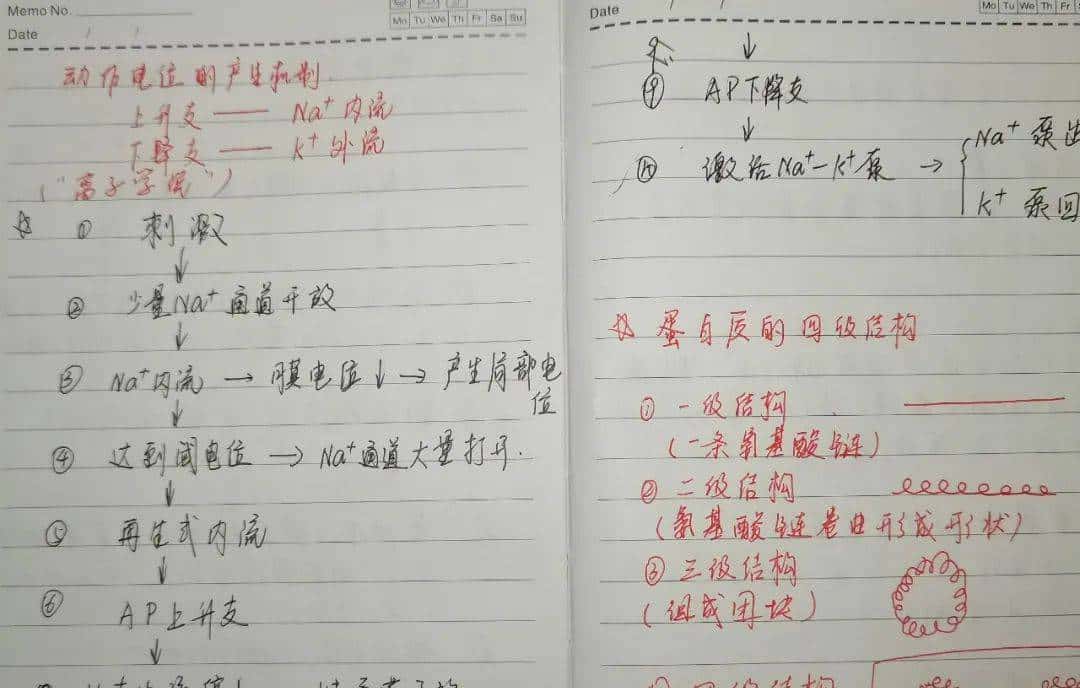 Memo No.
Mo Tu We Th Fr Sa Su
Date / /
动作电位的产生机制
上升支 —— Na⁺内流
下降支 —— K⁺外流
("离子学说")
☆ ① 刺激
↓
② 少量Na⁺通道开放
↓
③ Na⁺内流 → 膜电位↓ → 产生局部电
位
↓
④ 达到阈电位 → Na⁺通道大量打开.
↓
⑤ 再生式内流
↓
⑥ AP上升支
↓
Date / /
Mo Tu We Th Fr
↓
⑨ AP下降支
↓
⑩ 激活Na⁺-K⁺泵 → { Na⁺ 泵出
K⁺ 泵回
☆ 蛋白质的四级结构
① 一级结构
(一条氨基酸链)
② 二级结构
(氨基酸链卷曲形成形状)
③ 三级结构
(组成团块)
四级结构